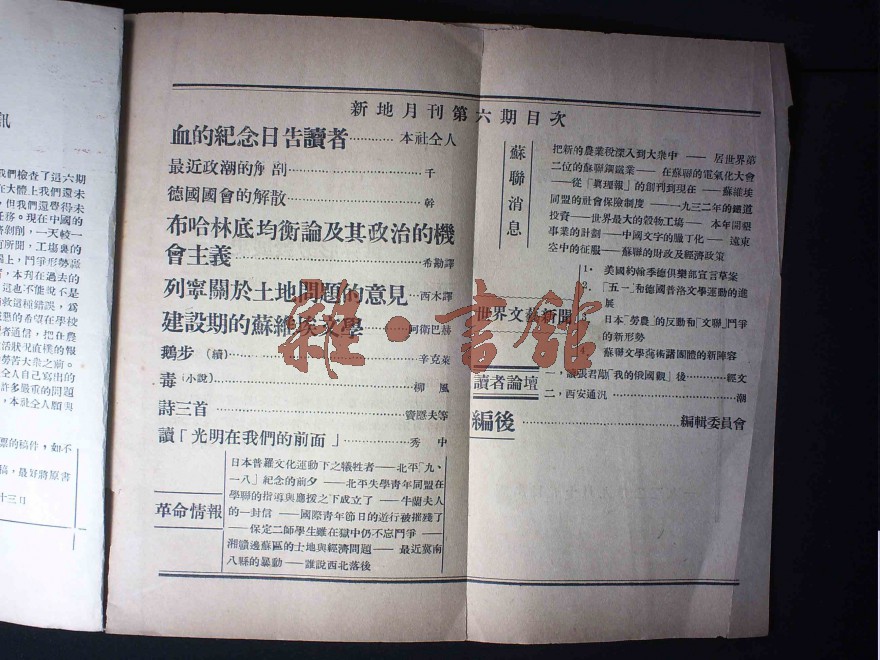 新地月刊第六期目次
血的紀念日告讀者…………本社全人
最近政潮的解剖…………千
德國國會的解散…………幹
布哈林底均衡論及其政治的機
會主義…………希勸譯
列寧關於土地問題的意見…西木譯
建設期的蘇維埃文學…阿衛巴赫
鵝步（續）…………辛克萊
毒（小說）…………柳風
詩三首…………等
讀「光明在我們的前面」…秀中
革命情報
日本普羅文化運動下之犧牲者——北平「九、
一八」紀念的前夕——北平失學青年同盟在
學聯的指導與應援之下成立了——牛蘭夫人
的一封信——國際青年節日的遊行被摧殘了
——保定二師學生雖在獄中仍不忘鬥爭——
湘贛邊蘇區的土地與經濟問題——最近冀南
八縣的暴動——誰說西北落後
蘇聯消息
把新的農業稅深入到大衆中——居世界第
二位的蘇聯鋼鐵業——在蘇聯的電氣化大會
——從「眞理報」的創刊到現在——蘇維埃
同盟的社會保險制度——一九三二年的總道
投資——世界最大的穀物工場——本年開墾
事業的計劃——中國文字的臘丁化——遠東
空中的征服——蘇聯的財政及經濟政策
世界文藝新聞
1．美國約翰季德俱樂部宣言草案
2．「五一」和德國普洛文學運動的進
展
3 日本「勞農」的反動和「文聯」鬥爭
的新形勢
4 蘇聯文學藝術諸團體的新陣容
讀者論壇
一，讀張君勱「我的俄國觀」後…………經文
二，西安通汛…………潮
編後…………編輯委員會
雜·書館
訊
我們檢查了這六期
在大體上我們還未
，但我們還覺得未
任務。現在中國的
剝削，一天較一
所聞，工場裏的
上，鬥爭形勢
，本刊在過去的
這也不能說不是
救這種錯誤，爲
懇的希望在學校
者通信，把在農
活狀況直樸的報
勞苦大衆之前。
全人自己寫出的
許多嚴重的問題
，本社全人願與
票的稿件，如不
稿，最好將原書
十三日